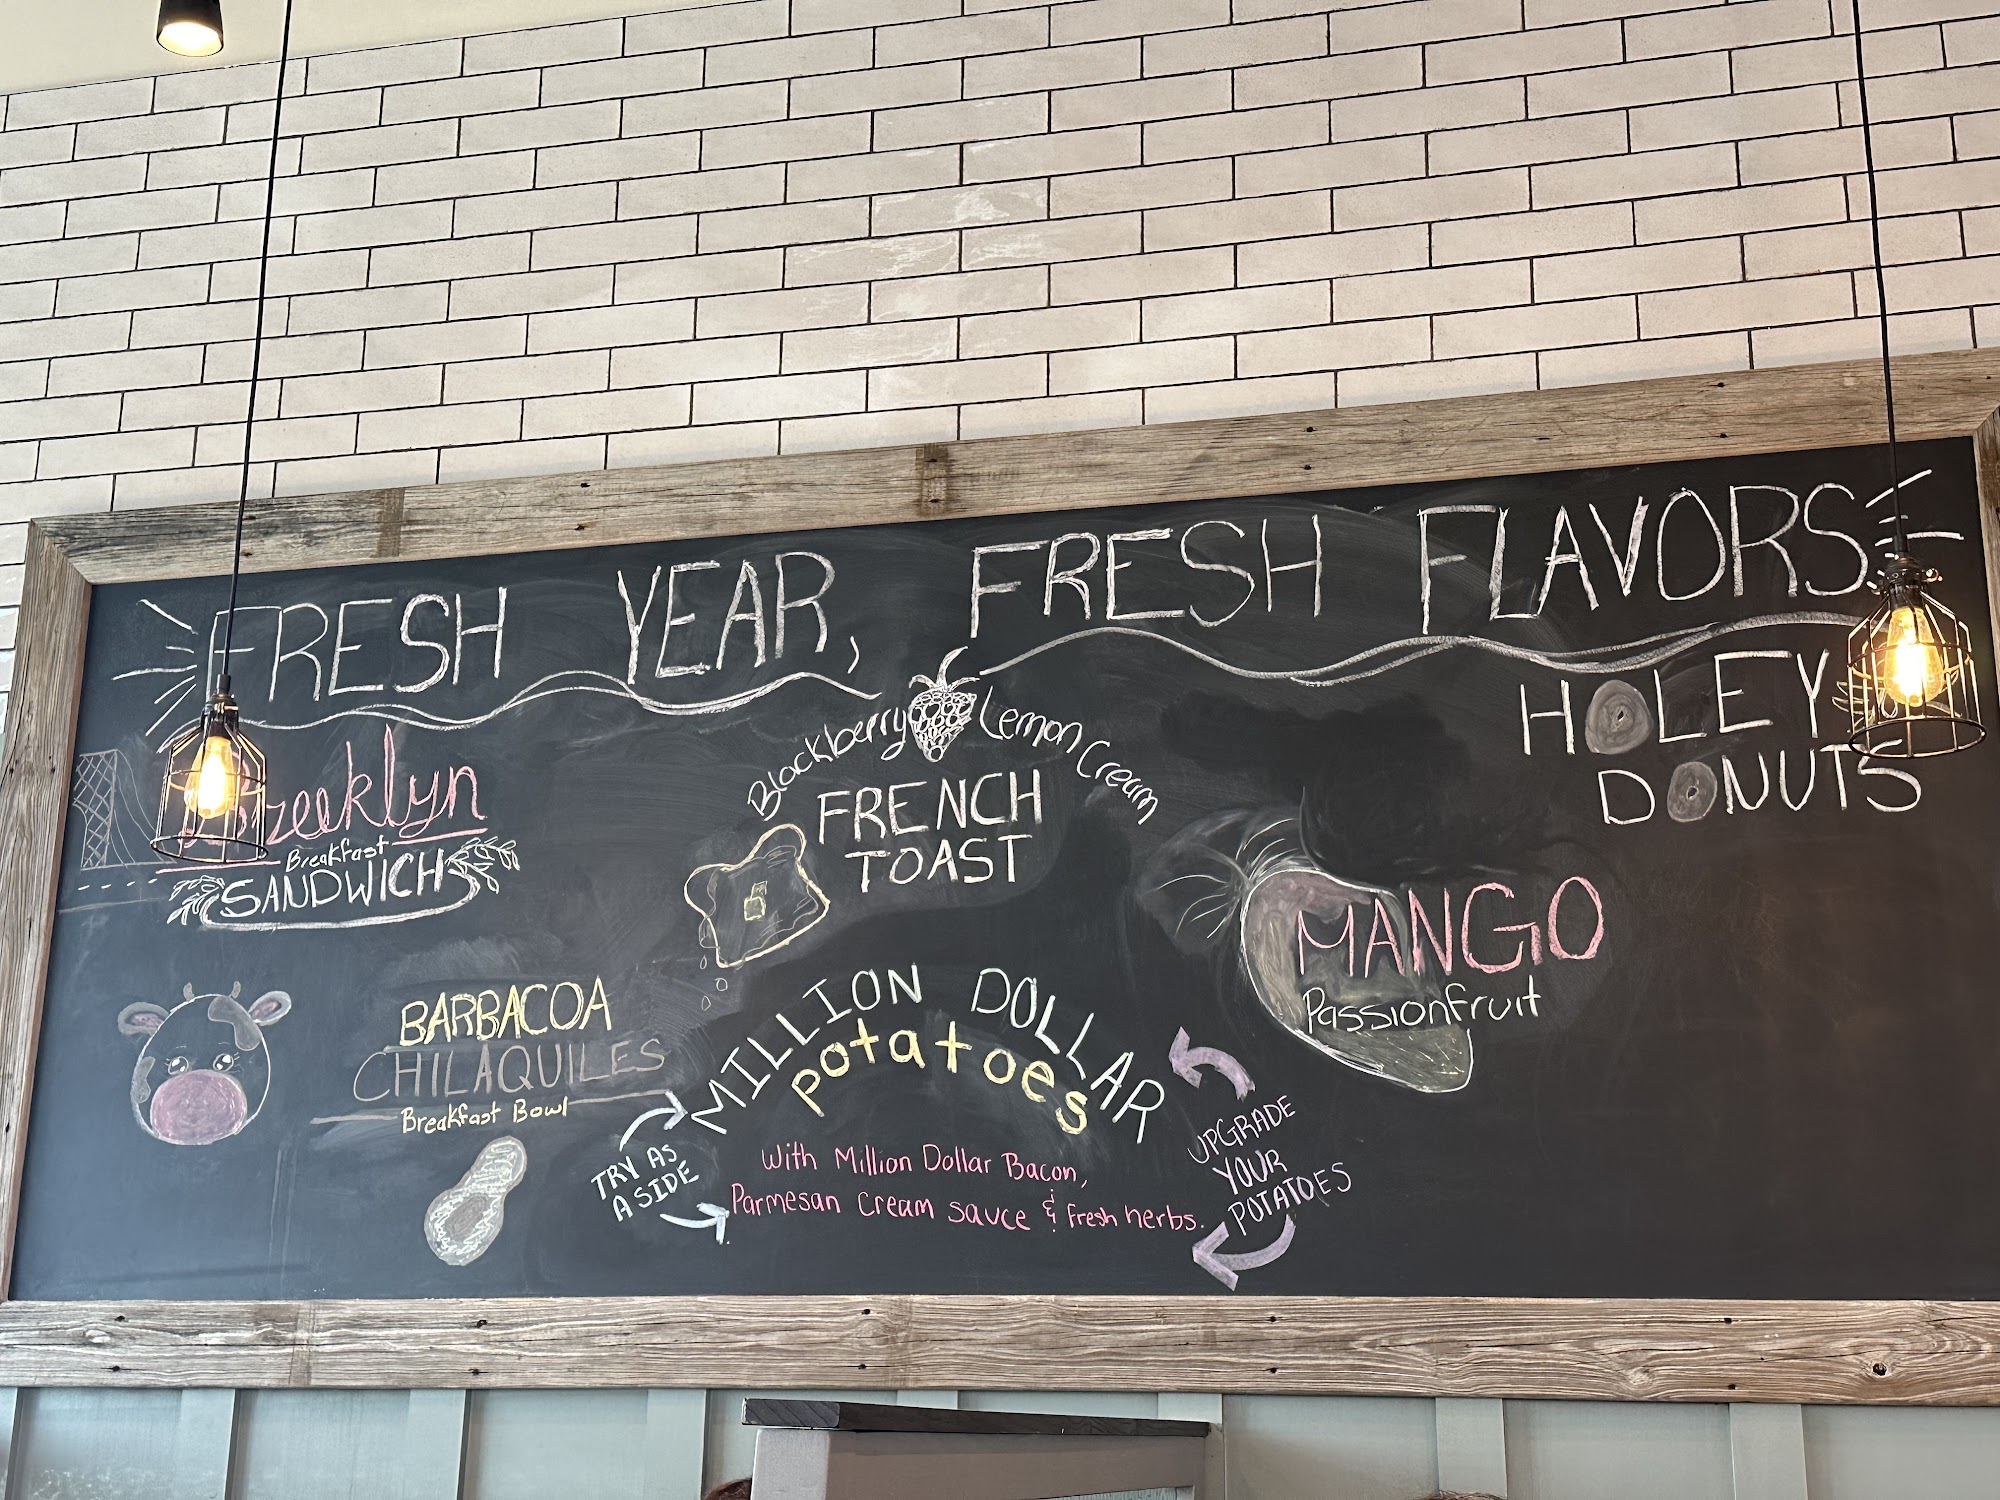 FRESH YEAR, FRESH FLAVORS
Brooklyn
Breakfast
SANDWICH
Blackberry Lemon Cream
FRENCH
TOAST
HOLEY
DONUTS
MANGO
Passionfruit
BARBACOA
CHILAQUILES
Breakfast Bowl
MILLION DOLLAR
potatoes
TRY AS
A SIDE
with Million Dollar Bacon,
Parmesan Cream sauce & fresh herbs.
UPGRADE
YOUR
POTATOES